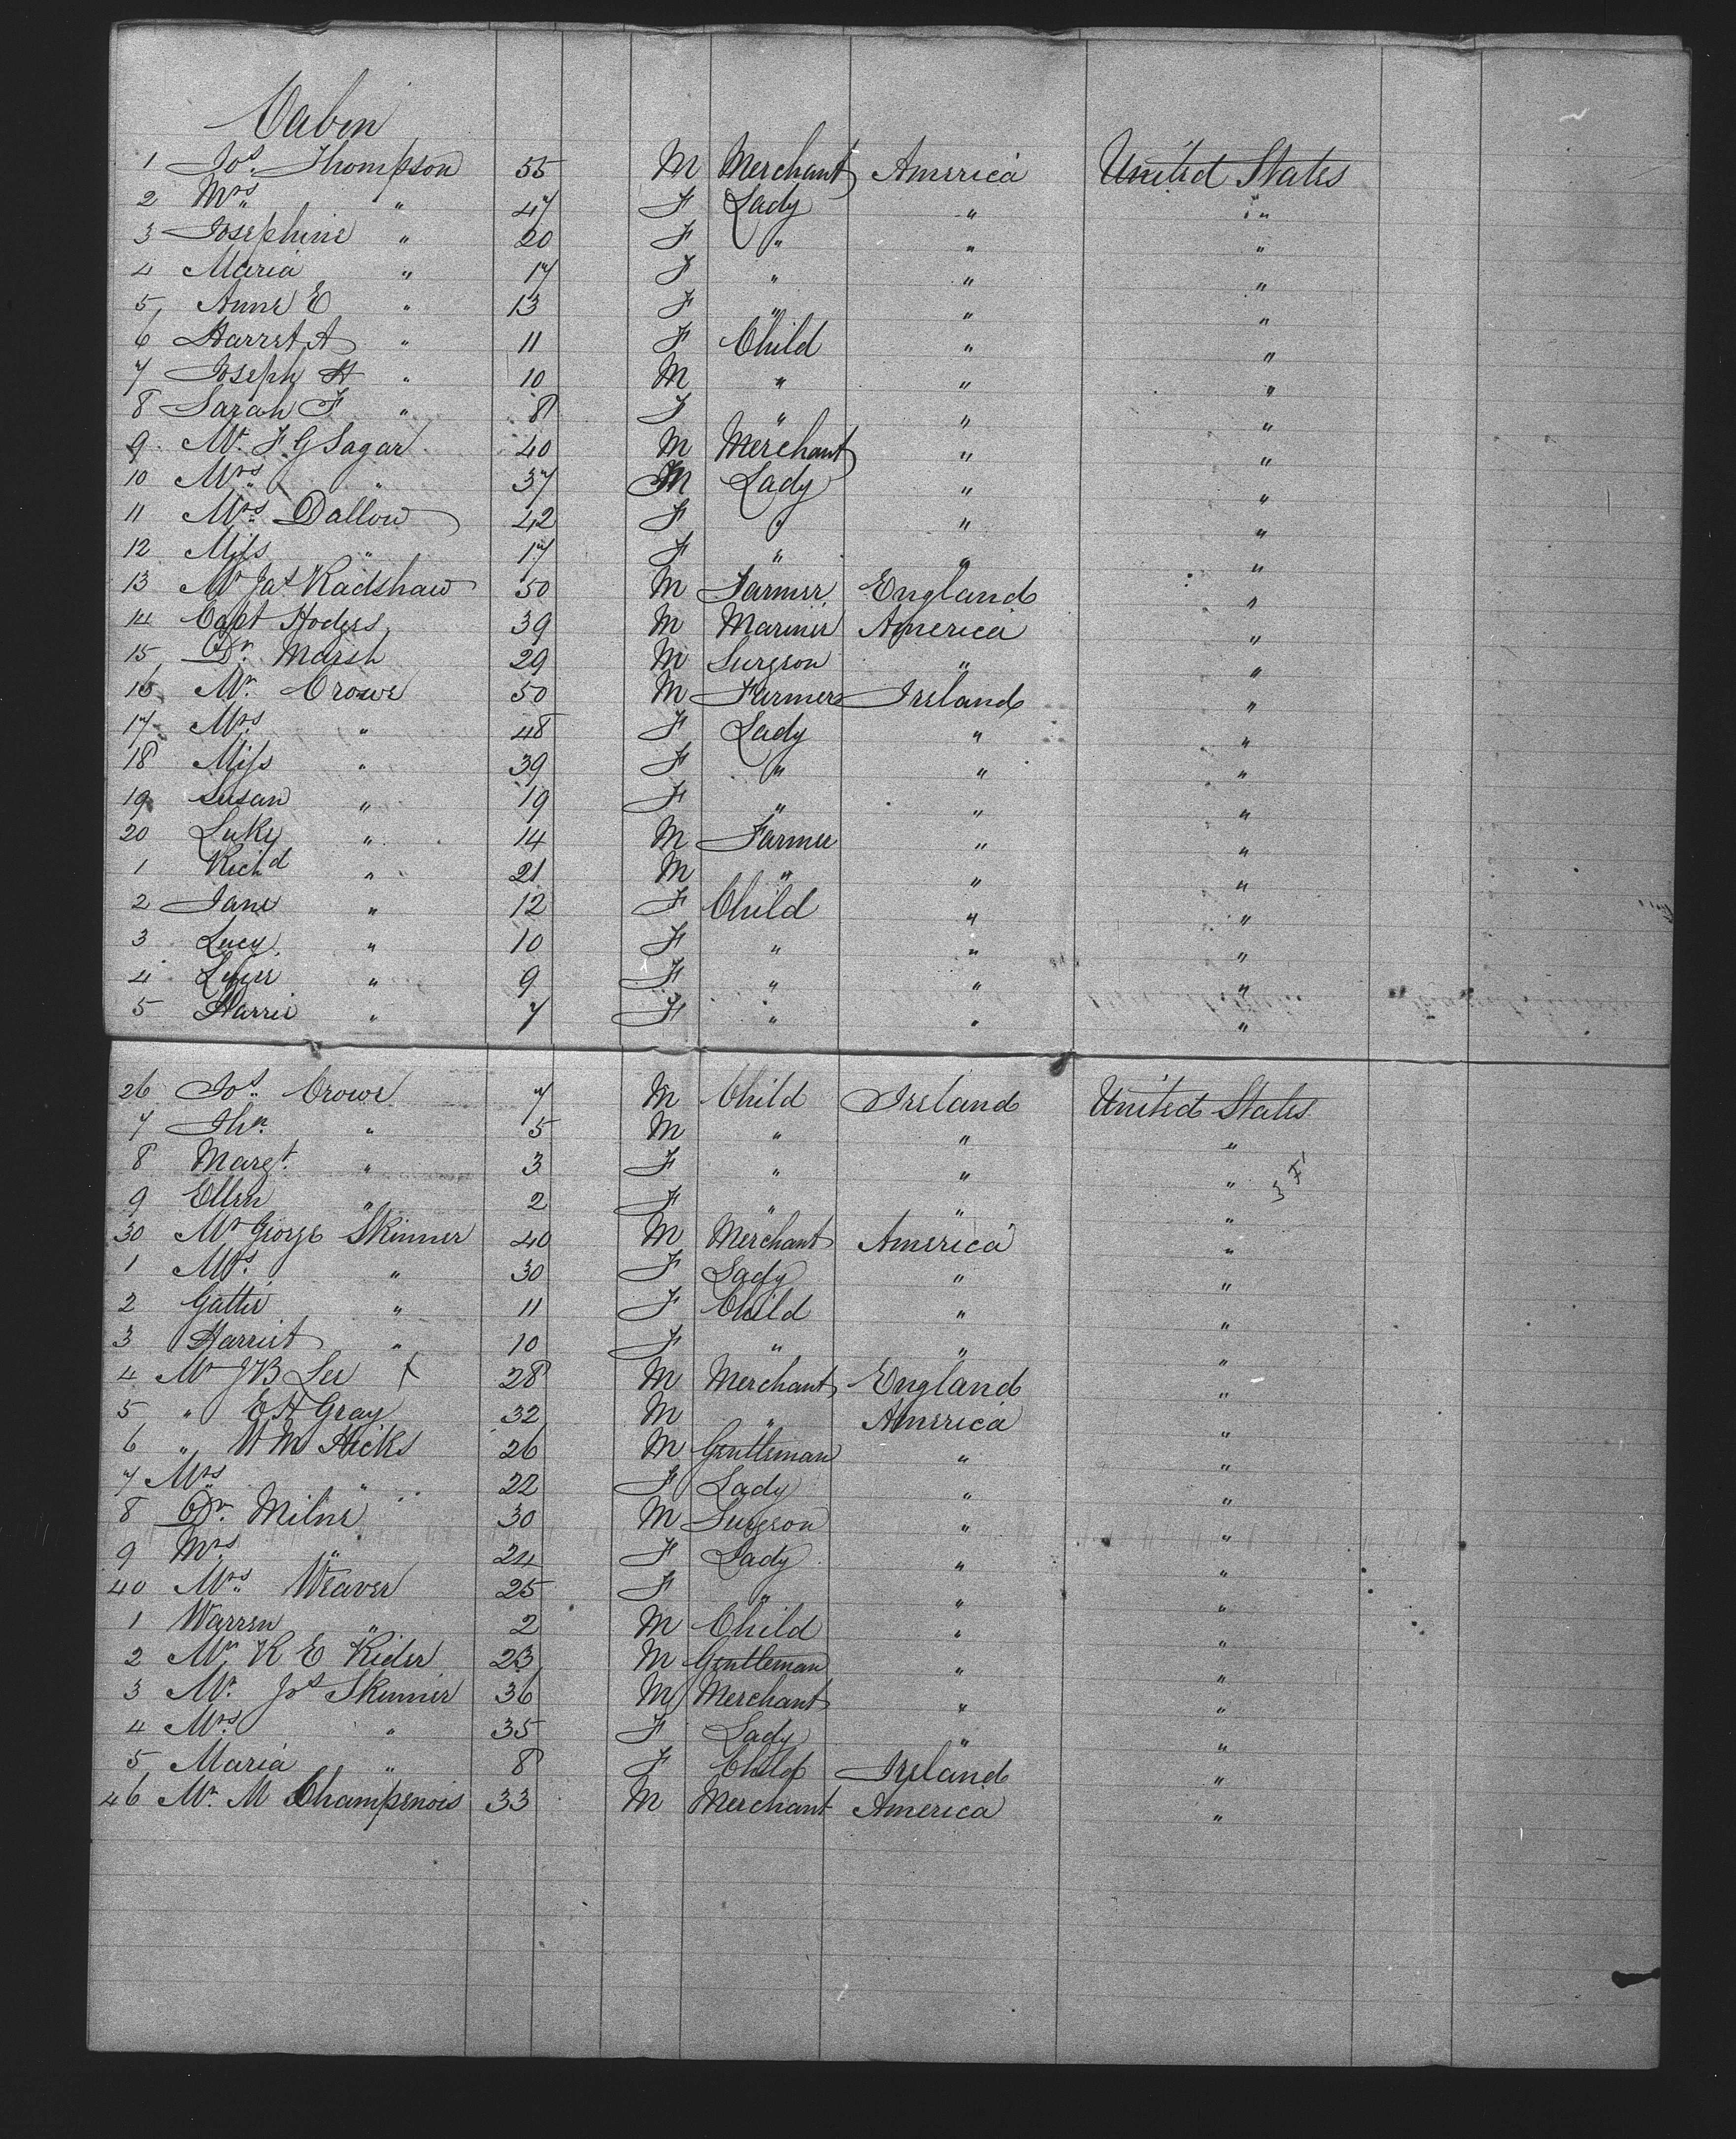 Cabin
1 Jos. Thompson 55 M Merchant America United States
2 Mrs. " 47 F Lady " "
3 Josephine " 20 F " " "
4 Maria " 17 F " " "
5 Anne E " 13 F " " "
6 Harret A " 11 F Child " "
7 Joseph H " 10 M " " "
8 Sarah F " 8 F " " "
9 Mr. F G Sagar 40 M Merchant " "
10 Mrs " 37 M Lady " "
11 Mrs. Dallow 42 F " " "
12 Miss " 17 F " " "
13 Mr Jas Radshaw 50 M Farmer England "
14 Capt Hoders 39 M Mariner America "
15 Dr. Marsh 29 M Surgeon " "
16 Mr. Crowe 50 M Farmer Ireland "
17 Mrs " 48 F Lady " "
18 Miss " 39 F " " "
19 Susan " 19 F " " "
20 Luke " 14 M Farmer " "
1 Richd " 21 M " " "
2 Jane " 12 F Child " "
3 Lucy " 10 F " " "
4 " 9 F " " "
5 Harrie " 7 F " " "
26 Jos. Crowe 7 M Child Ireland United States
7 Thos. " 5 M " " "
8 Margt. " 3 F " " "
9 Ellen " 2 F " " "
30 Mr George Skinner 40 M Merchant America "
1 Mrs. " 30 F Lady " "
2 Gattie " 11 F Child " "
3 Harriet " 10 F " " "
4 Mr J B Lee 28 M Merchant England "
5 " E H Gray 32 M " America "
6 " Wm Hicks 26 M Gentleman " "
7 Mrs " 22 F Lady " "
8 Dr. Milne 30 M Surgeon " "
9 Mrs " 24 F Lady " "
40 Mrs. Weaver 25 F " " "
1 Warren " 2 M Child " "
2 Mr. R E Rider 23 M Gentleman " "
3 Mr. Jos Skinner 36 M Merchant " "
4 Mrs. " 35 F Lady " "
5 Maria " 8 F Child Ireland "
46 Mr. M Champenois 33 M Merchant America "